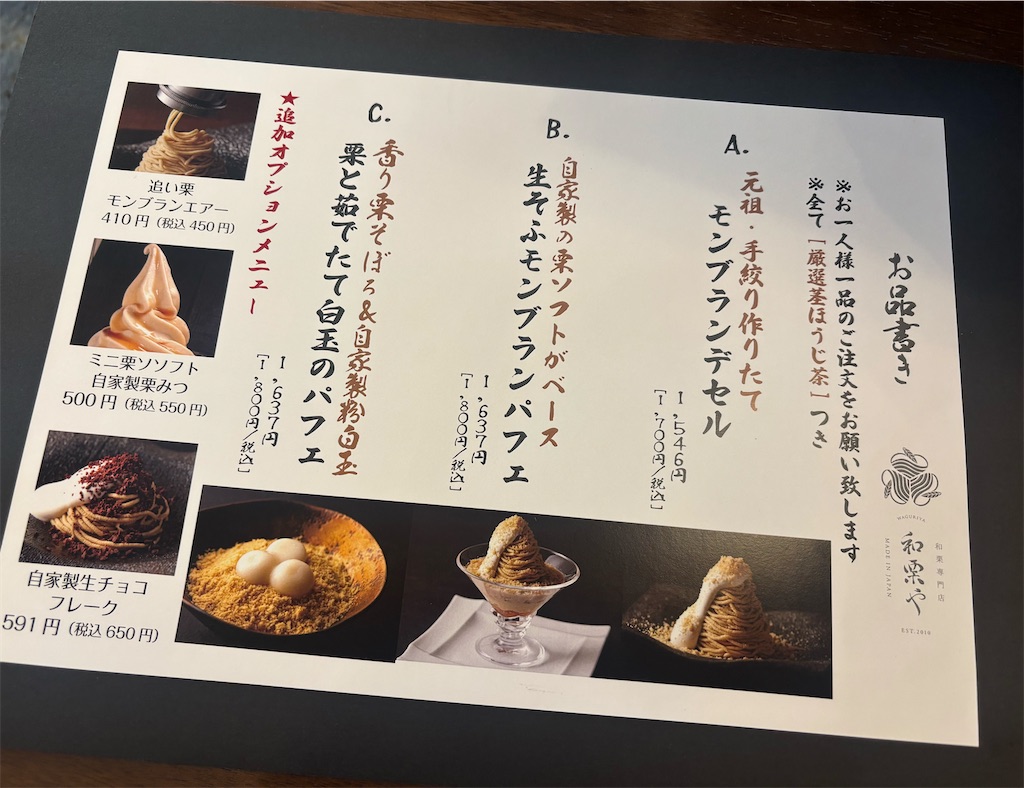 お品書き
※お一人様一品のご注文をお願い致します
※全て[厳選茎ほうじ茶]つき
A.
元祖・手絞り作りたて
モンブランデセル
1,546円
[1,700円/税込]
B.
自家製の栗ソフトがベース
生そふモンブランパフェ
1,637円
[1,800円/税込]
C.
香り栗そぼろ&自家製粉白玉
栗と茹でたて白玉のパフェ
1,637円
[1,800円/税込]
★追加オプションメニュー
追い栗
モンブランエアー
410円(税込450円)
ミニ栗ソソフト
自家製栗みつ
500円(税込550円)
自家製生チョコ
フレーク
591円(税込650円)
WAGURIYA
和栗専門店
和栗や
MADE IN JAPAN
EST.2010